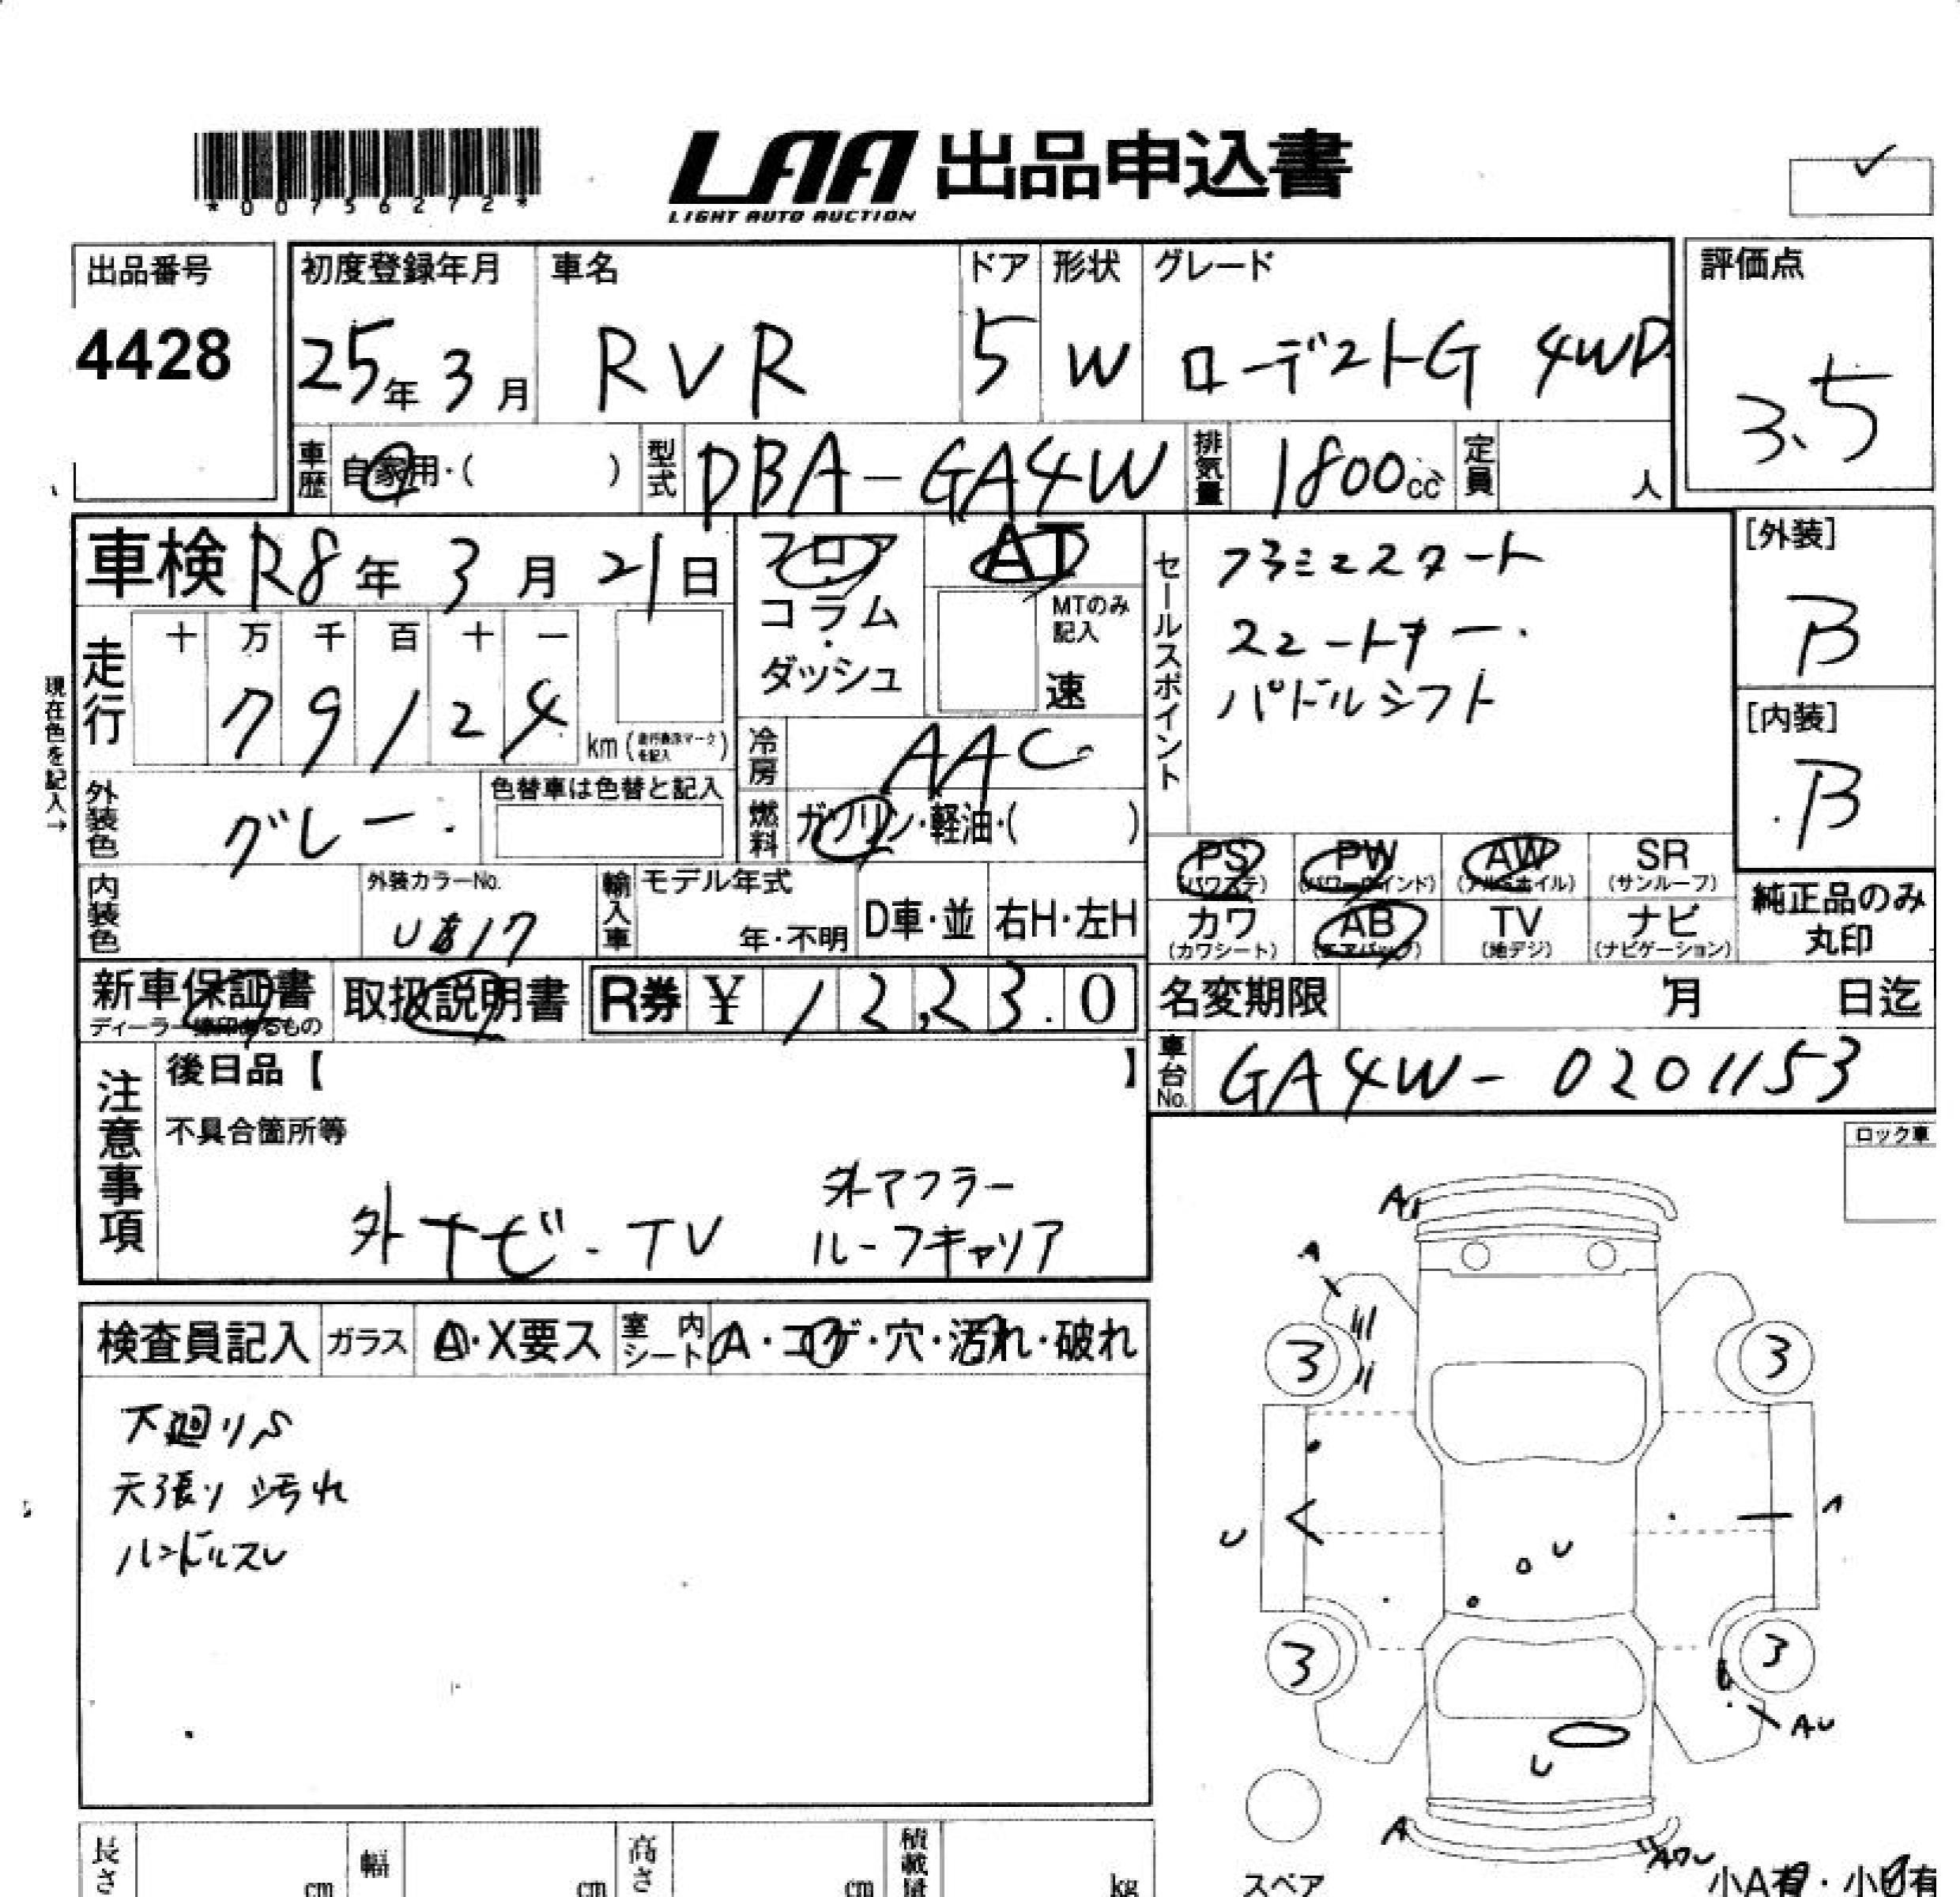 *00756272*
LAA 出品申込書
LIGHT AUTO AUCTION
出品番号
4428
初度登録年月
25年 3月
車名
RVR
ドア
5
形状
W
グレード
ローデストG 4WD
評価点
3.5
車歴 自家用・( )
型式 DBA-GA4W
排気量 1800cc
定員 人
車検 R8年 3月 21日
フロア
コラム
・
ダッシュ
AT
MTのみ
記入
速
セールスポイント
スマートキー
パドルシフト
[外装]
B
[内装]
B
走行
十 万 千 百 十 一
7 9 1 2 4
km (走行表示マークを記入)
現在色を記入→
冷房 AAC
燃料 ガソリン・軽油・( )
外装色 グレー
色替車は色替と記入
内装色
外装カラーNo.
U17
輸入車
モデル年式
年・不明
D車・並
右H・左H
PS (パワステ)
PW (パワーウインド)
AW (アルミホイル)
SR (サンルーフ)
カワ (カワシート)
AB (エアバッグ)
TV (地デジ)
ナビ (ナビゲーション)
純正品のみ
丸印
新車保証書
取扱説明書
R券 ¥ 12,23.0
名変期限 月 日迄
車台No. GA4W-0201153
注意事項
後日品【 】
不具合箇所等
外ナビ・TV
外マフラー
ルーフキャリア
ロック車
検査員記入
ガラス A・X要ス
室内シート A・コゲ・穴・汚れ・破れ
下廻りS
天張り汚れ
ハンドルスレ
A1
A
3
3
U
A
U
3
3
AU
U
A
スペア
小A有・小U有
長さ cm
幅 cm
高さ cm
積載量 kg